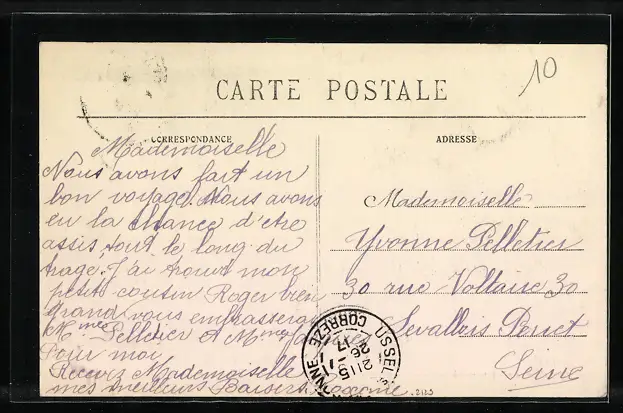 10
CARTE POSTALE
CORRESPONDANCE
ADRESSE
Mademoiselle
Nous avons fait un
bon voyage. Nous avons
eu la chance d'etre
assis tout le long du
trage, J'ai trouvé mon
petit cousin Roger bien
grand vous embrasserez
Mme Pelletier et Mme
Pour moi
Recevez Mademoiselle
mes meilleurs Baisers
Mademoiselle
Yvonne Pelletier
30 rue Voltaire 30
Levallois Perret
Seine
USSEL
CORREZE
2115
26
17
2115